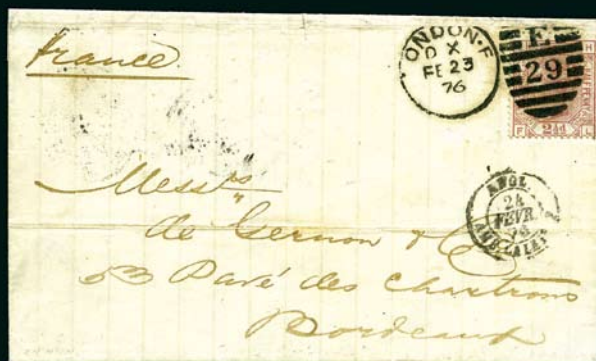 France
LONDON·E
D X
FE 23
76
E
29
H
F 2½d L
ANGL.
24
FEVR.
76
AMB. CALAIS
Messrs
de Gernon & Co
53 Pavé des Chartrons
Bordeaux